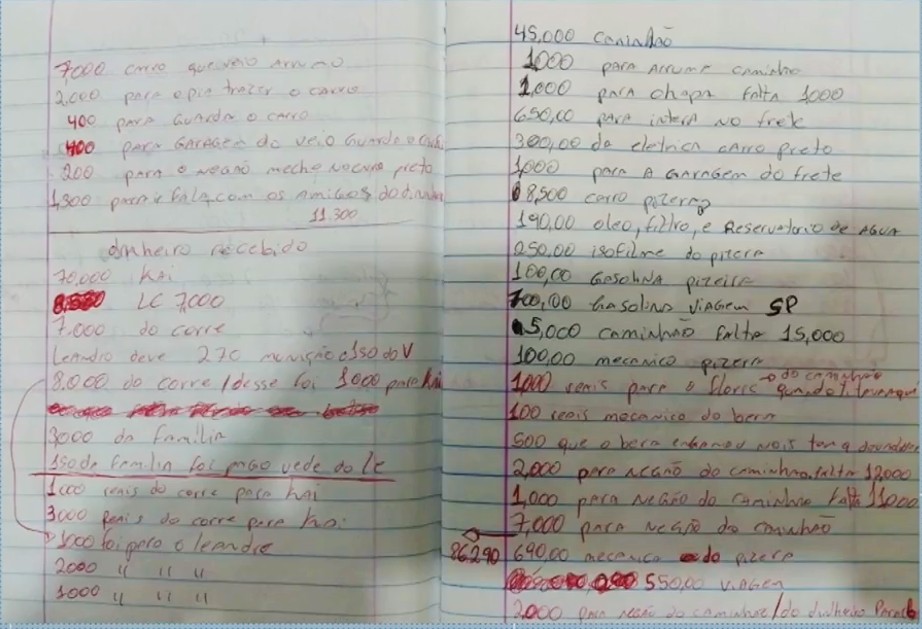 7,000 carro que veio Arrumo
2,000 para o pia trazer o carro
400 para Guarda o carro
400 para GARAGEM do veio Guarda o
200 para o negão meche no carro preto
1,300 para ir fala com os Amigos do
11.300
dinheiro recebido
70,000 kai
LC 7,000
7,000 do corre
Leandro deve 270 munição e 150 do V
8,000 do corre / desse foi 1000 para kai
3000 da família
150 da familia foi pago vede do LC
1000 reais do corre para kai
3000 reais do corre para kai
1000 foi para o leandro
2000 " " "
1000 " " "
45,000 caminhão
1000 para Arruma caminhão
1,000 para chapa falta 1000
650,00 para intera no frete
300,00 da eletrica carro preto
1,000 para A GARAGEM do frete
8,500 carro pizera
190,00 oleo, filtro, e Reservatorio de AGUA
250,00 isofilme do pizera
100,00 GasoliNA pizeira
700,00 Gasolina viagem SP
5,000 caminhão falta 15,000
100,00 mecanico pizera
1,000 reais para o flores → do caminhão
100 reais mecanico do bera
500 que o bera
2,000 para negão do caminhao falta 12,000
1,000 para negão do caminhão falta 11,000
7,000 para negão do caminhão
86.290 690,00 mecanico do pizera
550,00 viagem
2,000 para negão do caminhão / do dinheiro